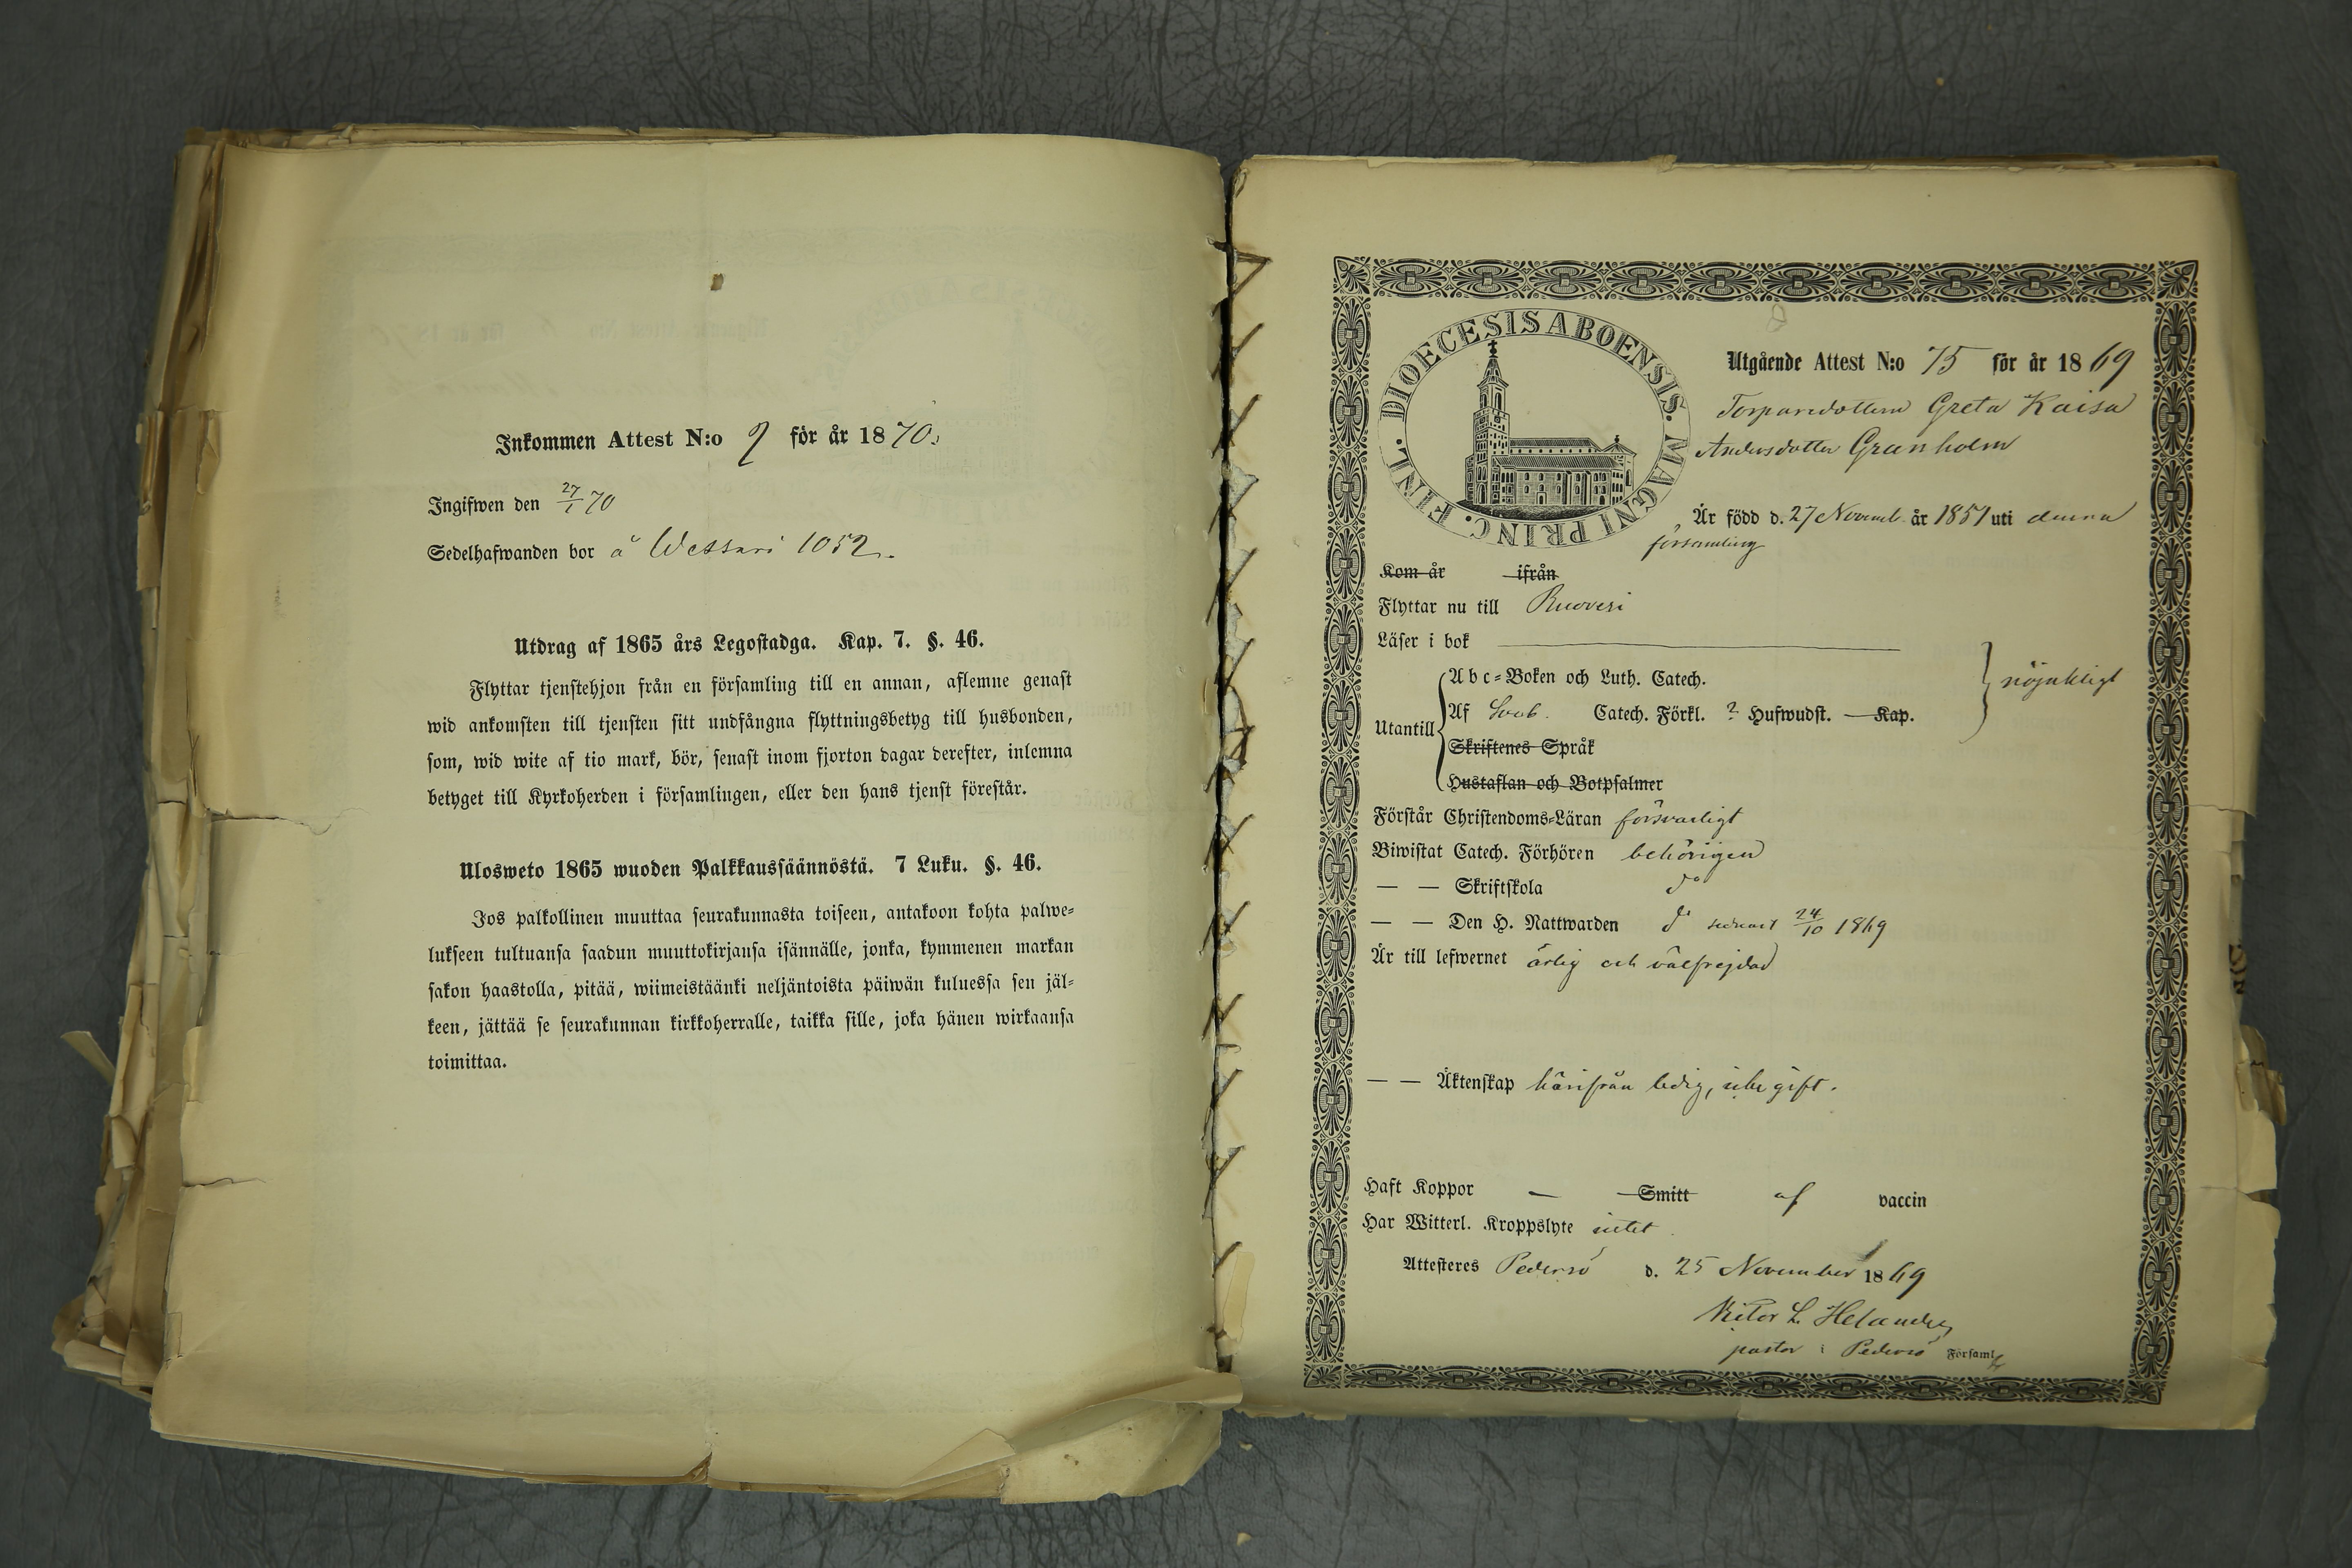 Inkommen Attest N:o 7 för år 1870.
Ingifwen den 27/1 70
Sedelhafwanden bor å Wessari 1052.
Utdrag af 1865 års Legostadga. Kap. 7. §. 46.
Flyttar tjenstehjon från en församling till en annan, aflemne genast
wid ankomsten till tjensten sitt undfångna flyttningsbetyg till husbonden,
som, wid wite af tio mark, bör, senast inom fjorton dagar derefter, inlemna
betyget till Kyrkoherden i församlingen, eller den hans tjenst förestår.
Ulosweto 1865 wuoden Palkkaussäännöstä. 7 Luku. §. 46.
Jos palkollinen muuttaa seurakunnasta toiseen, antakoon kohta palwe=
lukseen tultuansa saadun muuttokirjansa isännälle, jonka, kymmenen markan
sakon haastolla, pitää, wiimeistäänki neljäntoista päiwän kuluessa sen jäl=
keen, jättää se seurakunnan kirkkoherralle, taikka sille, joka hänen wirkaansa
toimittaa.
DIOECESIS ABOENSIS. MAGNI PRINC. FINL.
Utgående Attest N:o 75 för år 1869
Torparedottern Greta Kaisa
Andersdotter Granholm
Är född d. 27 Novemb. år 1851 uti denna
församling
Kom år ifrån
Flyttar nu till Ruovesi
Läser i bok
Utantill
Abc=Boken och Luth. Catech.
Af Sveb. Catech. Förkl. 2 Hufwudst. — Kap.
Skriftenes Språk
Hustaflan och Botpsalmer
nöjaktigt
Förstår Christendoms=Läran försvarligt
Biwistat Catech. Förhören behörigen
— — Skriftskola do
— — Den H. Nattwarden do senast 24/10 1869
Är till lefwernet ärlig och välfrejdad
— — Äktenskap härifrån ledig, icke gift.
Haft Koppor — Smitt af vaccin
Har Witterl. Kroppslyte intet.
Attesteres Pedersö d. 25 November 1869
Viktor L. Helander
pastor i Pedersö Församl.